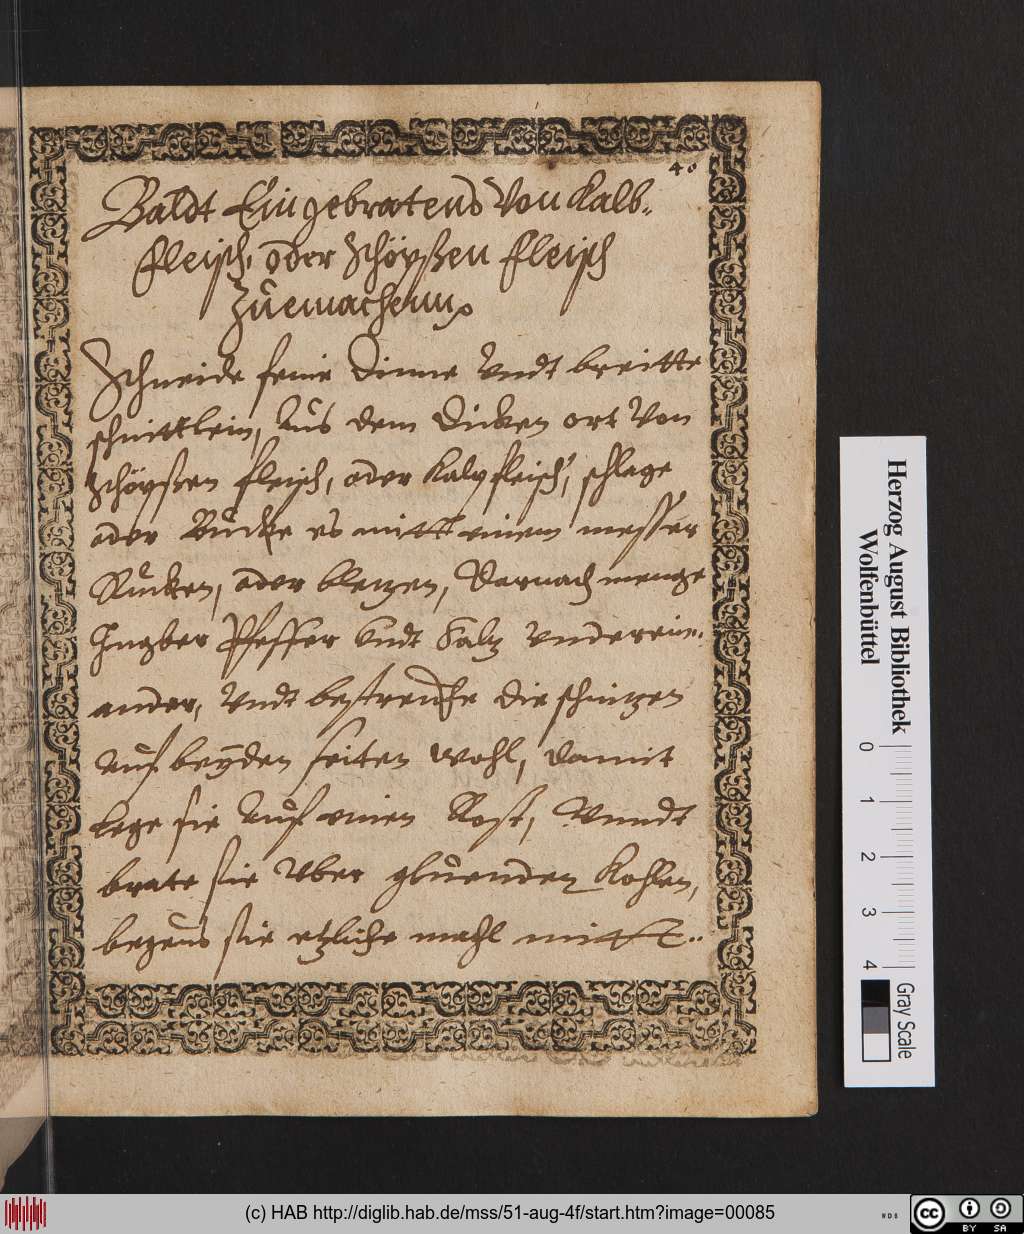 40
Baldt Ein gebratens Von Kalb..
fleisch, oder Schöpßen fleisch
Zuemachenn
Schneide feine Dinne Vndt breitte
schnittlein, Aus dem Dicken ort Von
Schöpßen fleisch, oder kalpfleisch, schlage
oder Bucke es mitt einem messer
Rucken, oder bletzen, Darnach menge
Ingber Pfeffer Vndt Saltz Vnderein..
ander, Vndt bestreuche die schnitzen
auf beyden seiten wohl, Damit
Lege sie Auf einen Rost, Vnndt
brate sie Vber gluenden Kohlen,
begeus sie etzliche mahl mitt..
Herzog August Bibliothek
Wolfenbüttel
0 1 2 3 4
Gray Scale
(c) HAB http://diglib.hab.de/mss/51-aug-4f/start.htm?image=00085
WDB
cc BY SA